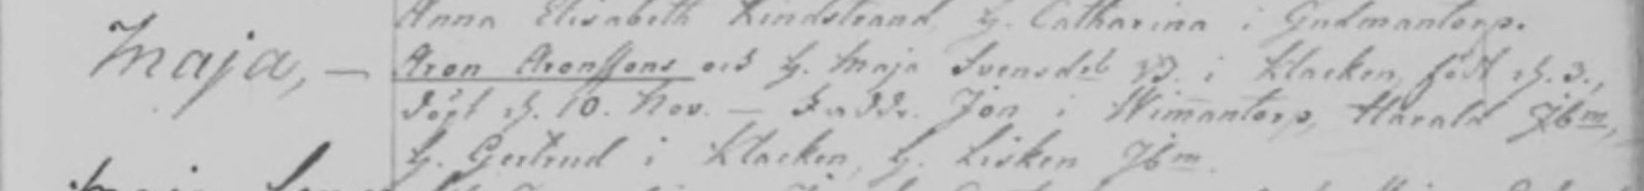 Anna Elisabeth Lindstrand, H. Catharina i Gudmantorp.
Maja, — Aron Aronssons och H. Maja Svensdr i Klacken, född d. 3.,
döpt d. 10. Nov. — Faddr. Jon i Wimantorp, Harald Ibm,
H. Gertrud i Klacken, H. Lisken Ibm.